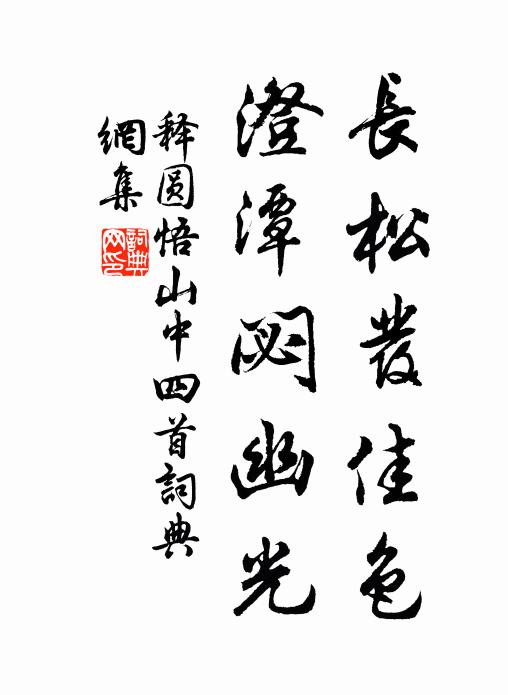 長松發佳色
澄潭閟幽光
释圆悟山中四首詞典
網集
詞典網印